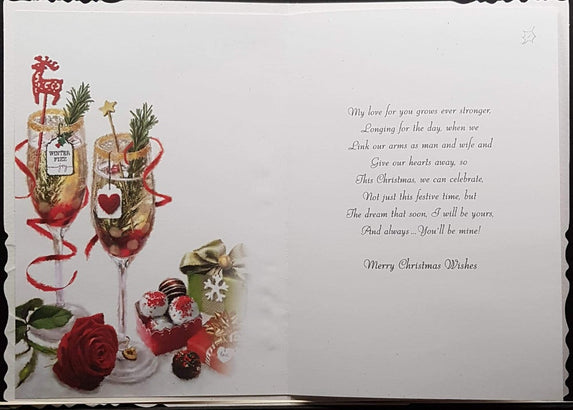 WINTER
FIZZ
My love for you grows ever stronger,
Longing for the day, when we
Link our arms as man and wife and
Give our hearts away, so
This Christmas, we can celebrate,
Not just this festive time, but
The dream that soon, I will be yours,
And always... You'll be mine!
Merry Christmas Wishes